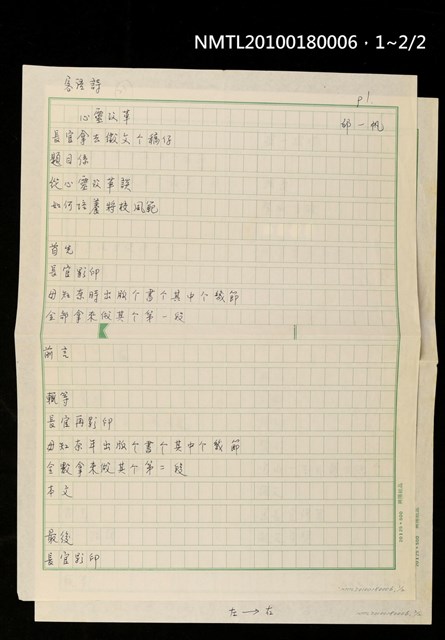 NMTL20100180006・1~2/2
客語詩
p1.
心靈改革
邱一帆
長官拿去徵文个稿仔
題目係
從心靈改革談
如何培養將校風範
首先
長官影印
毋知奈時出版个書个其中个幾節
全部拿來做其个第一段
前言
續等
長官再影印
毋知奈年出版个書个其中个幾節
全數拿來做其个第二段
本文
最後
長官影印
左→右